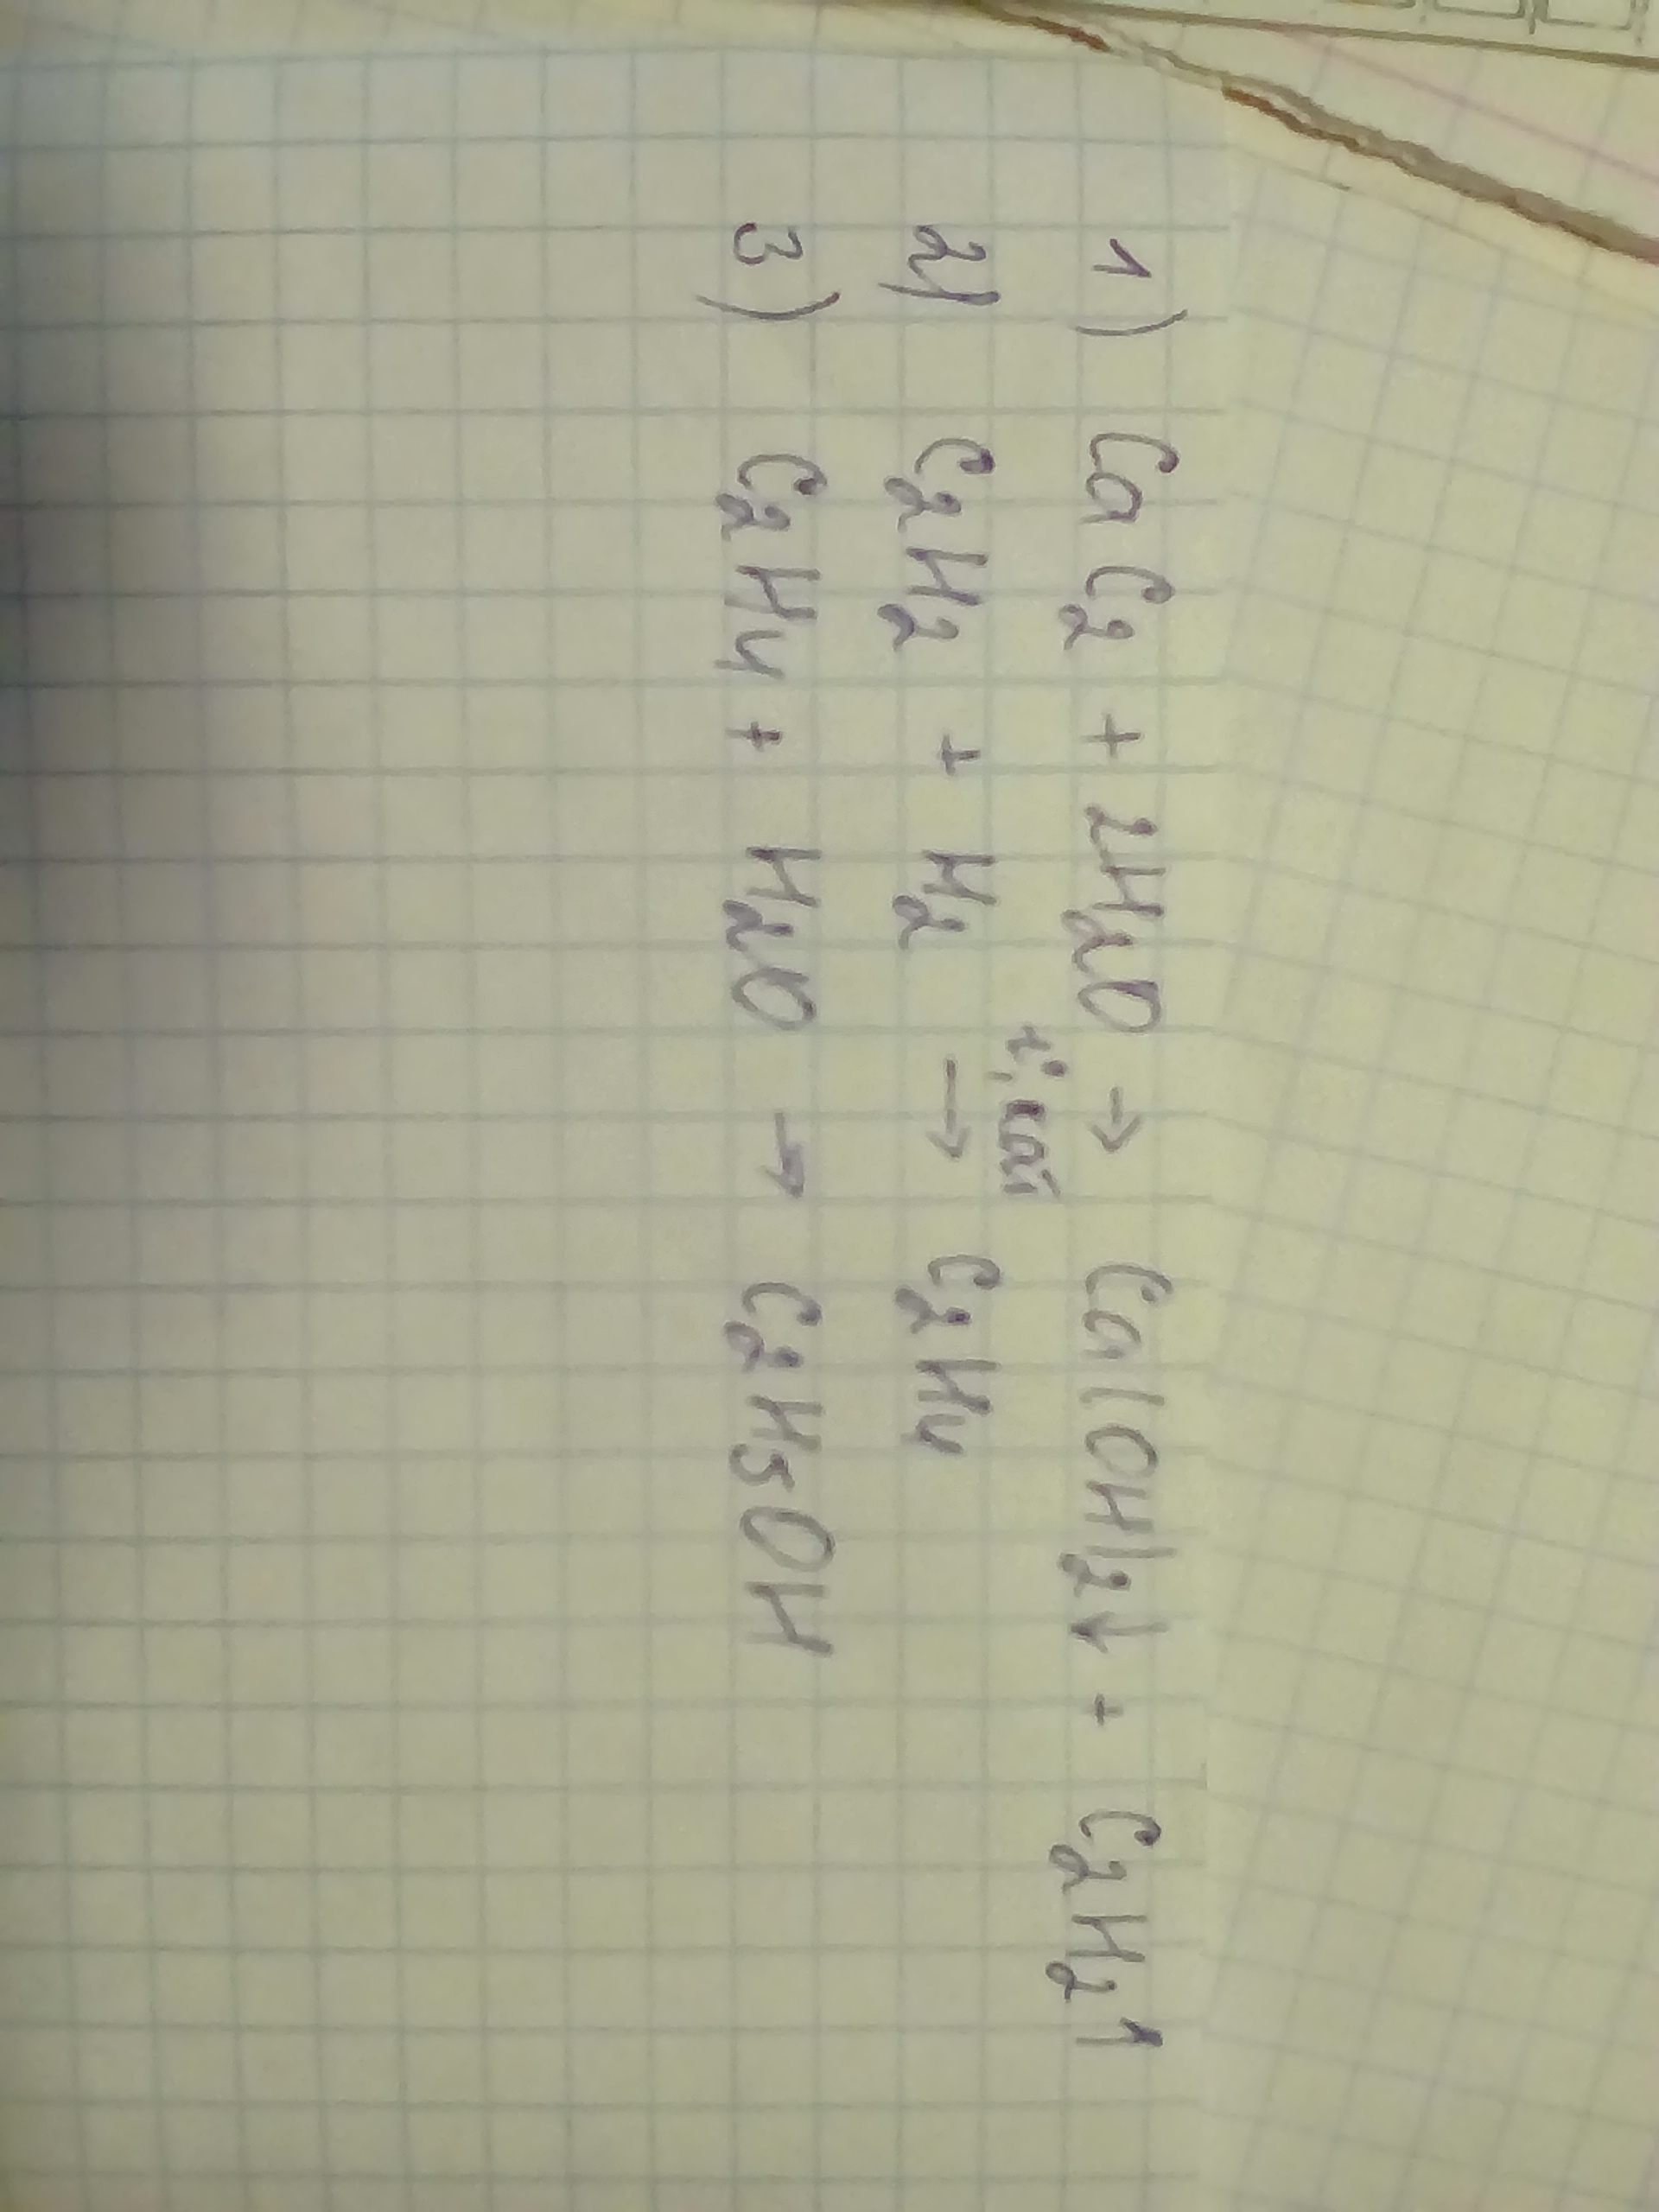 1) CaC2 + 2H2O → Ca(OH)2↓ + C2H2↑
t°, кат
2) C2H2 + H2 → C2H4
3) C2H4 + H2O → C2H5OH